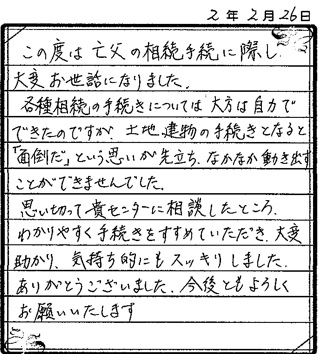 2年2月26日
この度は亡父の相続手続に際し
大変お世話になりました。
各種相続の手続きについては大方は自力で
できたのですが、土地建物の手続きとなると
「面倒だ」という思いが先立ち、なかなか動き出す
ことができませんでした。
思い切って貴センターに相談したところ、
わかりやすく手続きをすすめていただき、大変
助かり、気持ち的にもスッキリしました。
ありがとうございました。今後ともよろしく
お願いいたします